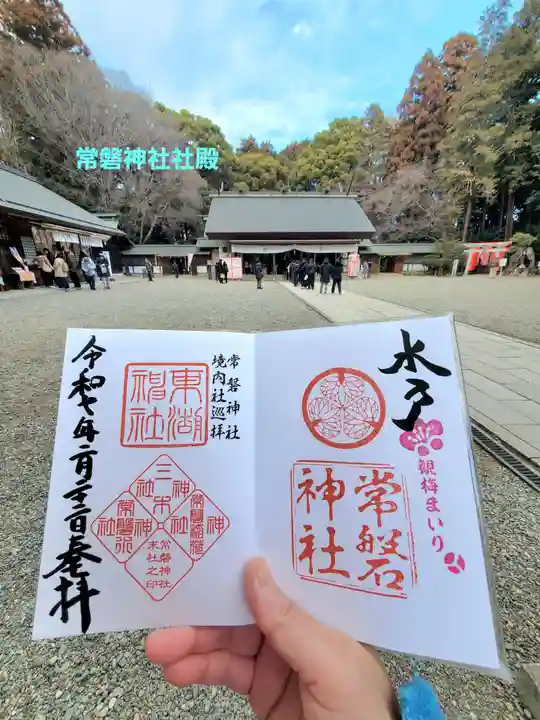 常磐神社社殿
水戸
観梅まいり
常磐
神社
常磐神社
境内社巡拝
東湖
神社
三木
神社
常磐稲荷
神社
常磐神社
末社之印
奉拝